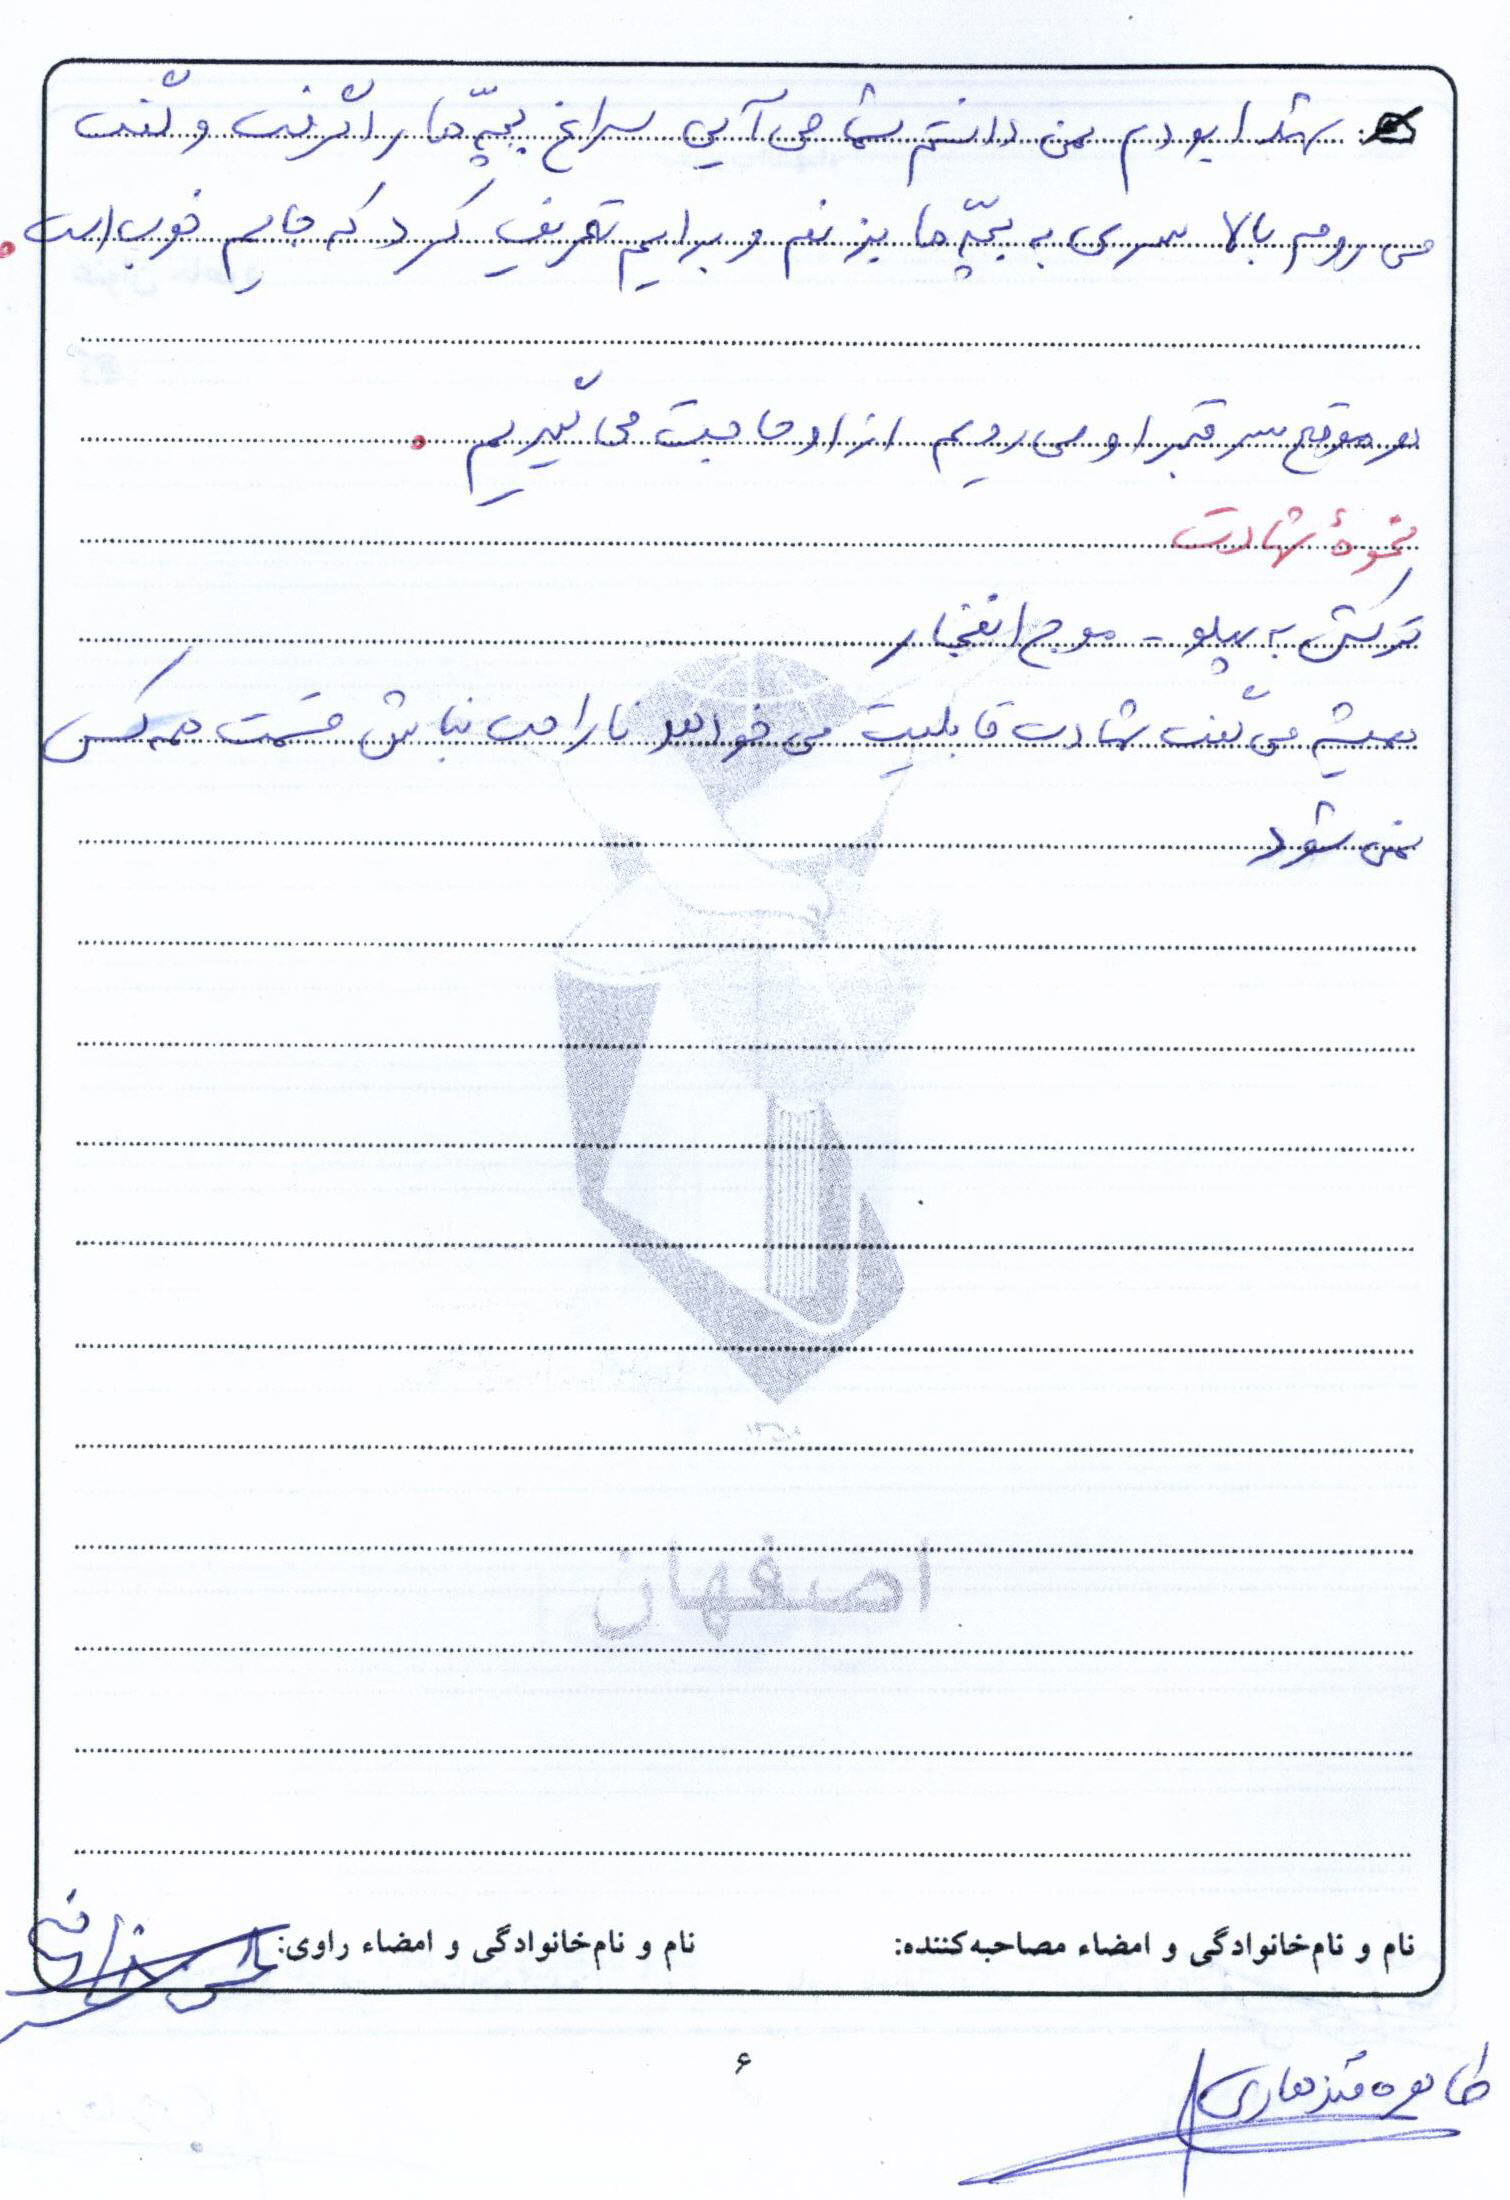 شهدا بودم نمی دانستم شما می آیی سراغ بچّه ها را گرفت و گفت
می روم بالا سری به بچّه ها بزنم و برایم تعریف کرد که جایم خوب است.
هر موقع سر قبر او می رویم از او حاجت می گیریم.
نحوۀ شهادت
ترکش به پهلو - موج انفجار
همیشه می گفت شهادت قابلیت می خواهد ناراحت نباش قسمت همه کس
نمی شود
اصفهان
نام و نام‌خانوادگی و امضاء مصاحبه‌کننده:
نام و نام‌خانوادگی و امضاء راوی:
۶
طاهره قندهاری